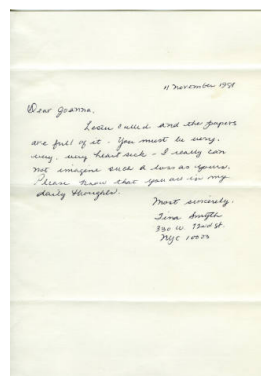 11 November 1998
Dear Joanna,
Leslie called and the papers
are full of it - You must be very,
very, very heart sick - I really can
not imagine such a loss as yours.
Please know that you are in my
daily thoughts.
Most sincerely,
Tina Smyth
330 W. 72nd St.
NYC 10023